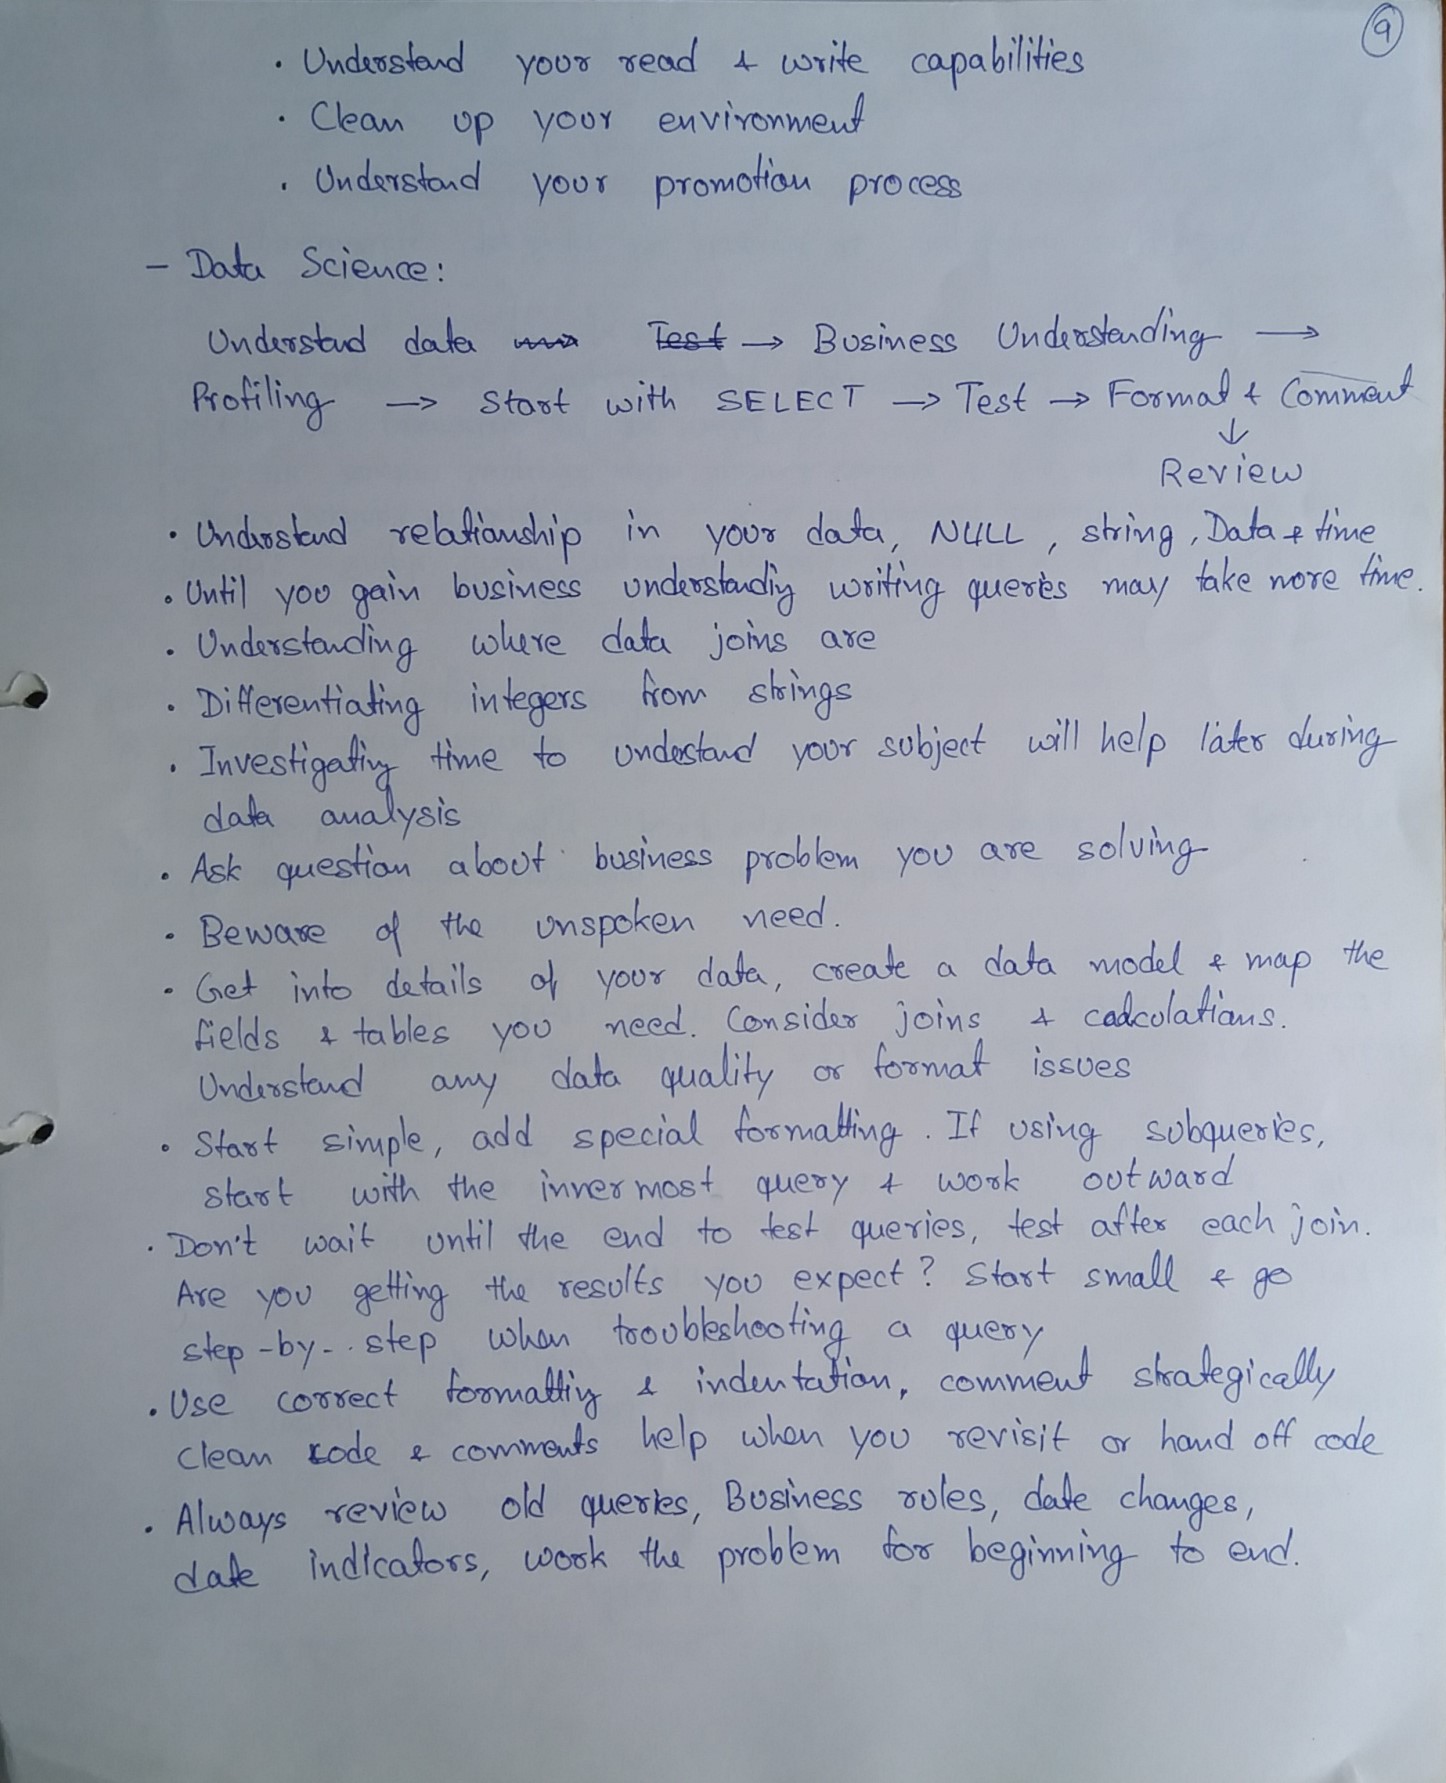 9
• Understand your read & write capabilities
• Clean up your environment
• Understand your promotion process
- Data Science:
Understand data Test → Business Understanding →
Profiling → Start with SELECT → Test → Format & Comment
↓
Review
• Understand relationship in your data, NULL, string, Data & time
• Until you gain business understanding writing queries may take more time.
• Understanding where data joins are
• Differentiating integers from strings
• Investigating time to understand your subject will help later during
data analysis
• Ask question about business problem you are solving
• Beware of the unspoken need.
• Get into details of your data, create a data model & map the
fields & tables you need. Consider joins & calculations.
Understand any data quality or format issues
• Start simple, add special formatting. If using subqueries,
start with the inner most query & work outward
• Don't wait until the end to test queries, test after each join.
Are you getting the results you expect? Start small & go
step-by-step when troubleshooting a query
• Use correct formatting & indentation, comment strategically
clean code & comments help when you revisit or hand off code
• Always review old queries, Business rules, date changes,
date indicators, work the problem for beginning to end.